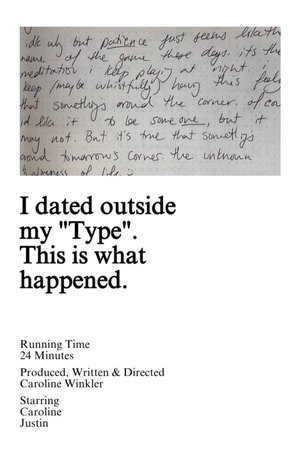 idk why but patience just seems like the
name of the game these days. its the
meditation i keep playing at night. i
keep (maybe whistfully) having this feeling
that something's around the corner. of cou
id like it to be someone, but it
may not. But it's true that something's
around tomorrow's corner. the unknown
of life is
I dated outside
my "Type".
This is what
happened.
Running Time
24 Minutes
Produced, Written & Directed
Caroline Winkler
Starring
Caroline
Justin